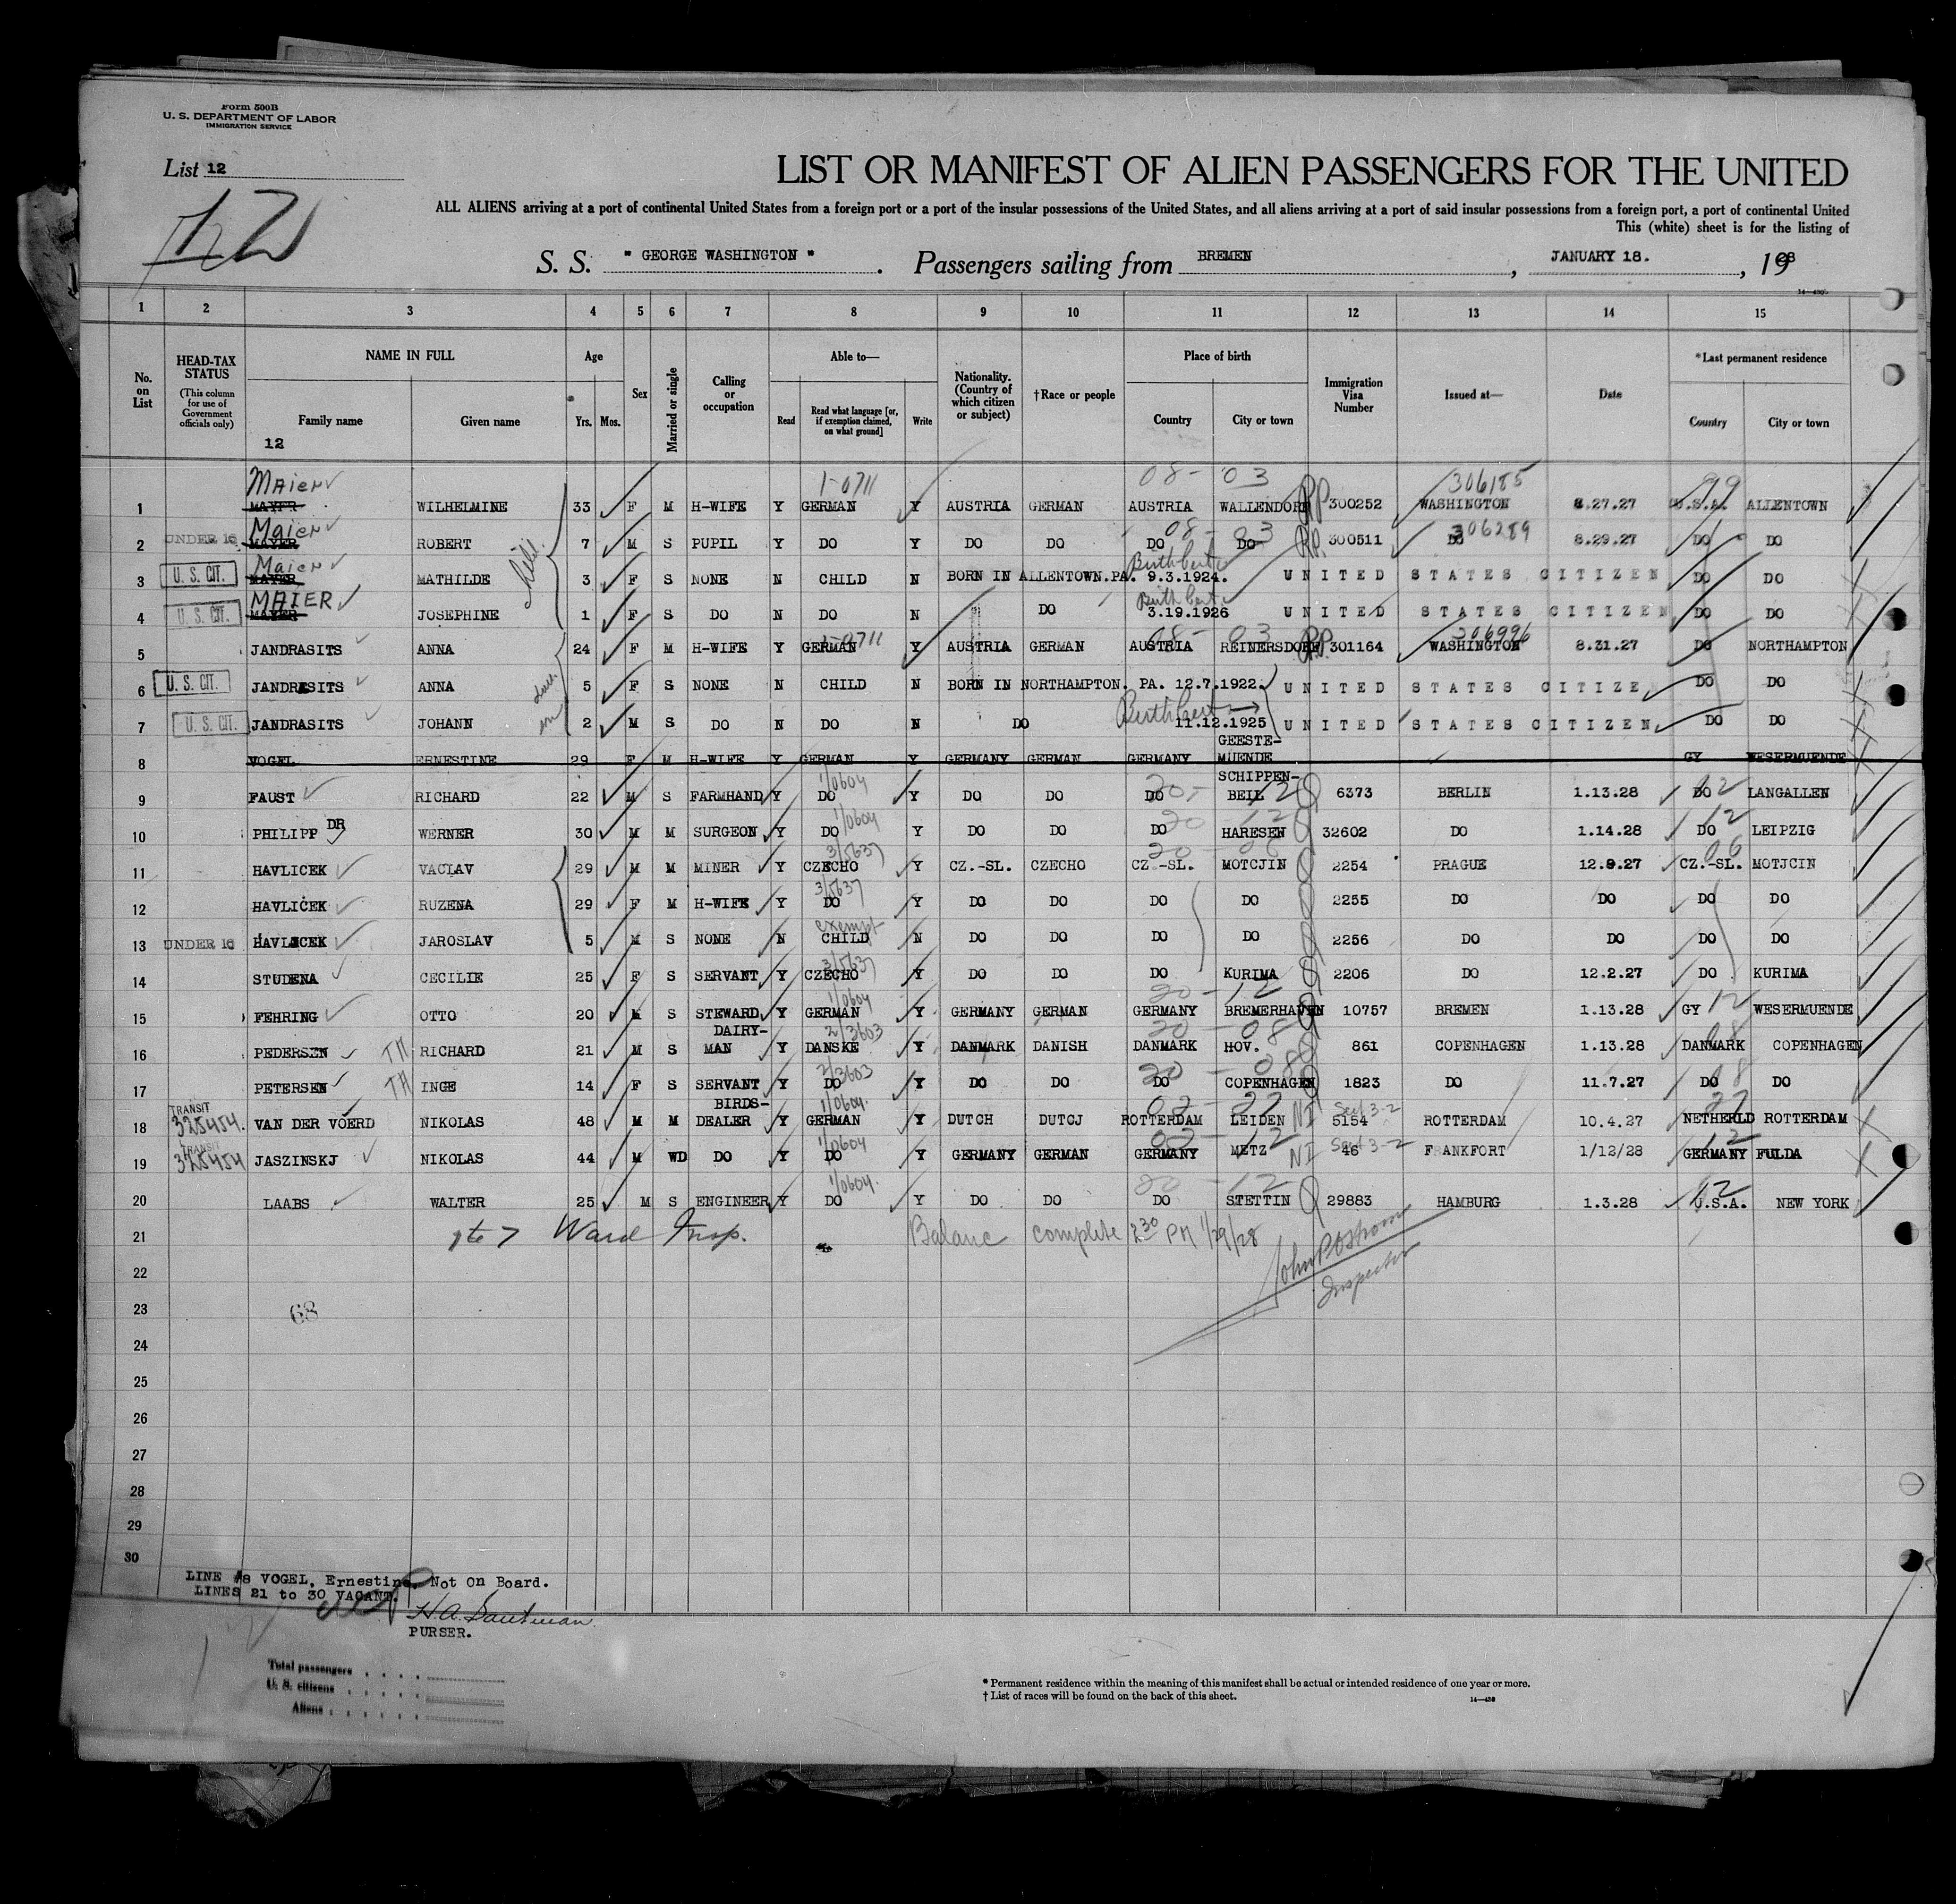 Form 500B
U. S. DEPARTMENT OF LABOR
IMMIGRATION SERVICE
List 12
12
LIST OR MANIFEST OF ALIEN PASSENGERS FOR THE UNITED
ALL ALIENS arriving at a port of continental United States from a foreign port or a port of the insular possessions of the United States, and all aliens arriving at a port of said insular possessions from a foreign port, a port of continental United
This (white) sheet is for the listing of
S. S. " GEORGE WASHINGTON " . Passengers sailing from BREMEN , JANUARY 18. , 19
1 2 3 4 5 6 7 8 9 10 11 12 13 14 15
No. on List
HEAD-TAX STATUS (This column for use of Government officials only)
NAME IN FULL Family name Given name
12
Age Yrs. Mos.
Sex
Married or single
Calling or occupation
Able to— Read Read what language [or, if exemption claimed, on what ground] Write
Nationality. (Country of which citizen or subject)
†Race or people
Place of birth Country City or town
Immigration Visa Number
Issued at—
Date
*Last permanent residence Country City or town
Maier 1-0711 08- 03 306185 99
1 MAYER WILHELMINE 33 F M H-WIFE Y GERMAN Y AUSTRIA GERMAN AUSTRIA WALLENDORF RP 300252 WASHINGTON 8.27.27 U.S.A. ALLENTOWN
Maier 08- 03 306289
2 UNDER 16 MAYER ROBERT 7 M S PUPIL Y DO Y DO DO DO DO RP. 300511 DO 8.29.27 DO DO
Maier Birth Cert
3 U. S. CIT. MAYER MATHILDE 3 F S NONE N CHILD N BORN IN ALLENTOWN.PA. 9.3.1924. UNITED STATES CITIZEN DO DO
MAIER Birth Cert
4 U. S. CIT. MAYER JOSEPHINE 1 F S DO N DO N DO 3.19.1926 UNITED STATES CITIZEN DO DO
1-0711 08- 03 306996
5 JANDRASITS ANNA 24 F M H-WIFE Y GERMAN Y AUSTRIA GERMAN AUSTRIA REINERSDORF RP. 301164 WASHINGTON 8.31.27 DO NORTHAMPTON
6 U. S. CIT. JANDRASITS ANNA 5 F S NONE N CHILD N BORN IN NORTHAMPTON. PA. 12.7.1922. UNITED STATES CITIZE DO DO
Birth Cert
7 U. S. CIT. JANDRASITS JOHANN 2 M S DO N DO N DO 11.12.1925 UNITED STATES CITIZEN DO DO
GEESTE-
8 VOGEL ERNESTINE 29 F M H-WIFE Y GERMAN Y GERMANY GERMAN GERMANY MUENDE GY WESERMUENDE
1/0604 SCHIPPEN-
9 FAUST RICHARD 22 M S FARMHAND Y DO Y DO DO DO BEIL 6373 BERLIN 1.13.28 DO LANGALLEN
1/0604 20 - 12 12
10 PHILIPP DR WERNER 30 M M SURGEON Y DO Y DO DO DO HARESEN 32602 DO 1.14.28 DO LEIPZIG
3/5637 20 - 06 06
11 HAVLICEK VACLAV 29 M M MINER Y CZECHO Y CZ.-SL. CZECHO CZ.-SL. MOTCJIN 2254 PRAGUE 12.9.27 CZ.-SL. MOTJCIN
3/5637
12 HAVLICEK RUZENA 29 F M H-WIFE Y DO Y DO DO DO DO 2255 DO DO DO DO
exempt
13 UNDER 16 HAVLICEK JAROSLAV 5 M S NONE N CHILD N DO DO DO DO 2256 DO DO DO DO
3/5637
14 STUDENA CECILIE 25 F S SERVANT Y CZECHO Y DO DO DO KURIMA 2206 DO 12.2.27 DO KURIMA
1/0604 20 - 12 12
15 FEHRING OTTO 20 M S STEWARD Y GERMAN Y GERMANY GERMAN GERMANY BREMERHAVEN 10757 BREMEN 1.13.28 GY WESERMUENDE
DAIRY- 2/3603 20 - 08 08
16 PEDERSEN RICHARD 21 M S MAN Y DANSKE Y DANMARK DANISH DANMARK HOV. 861 COPENHAGEN 1.13.28 DANMARK COPENHAGEN
2/3603 20 - 08 08
17 PETERSEN INGE 14 F S SERVANT Y DO Y DO DO DO COPENHAGEN 1823 DO 11.7.27 DO DO
TRANSIT BIRDS- 1/0604 02 - 27 27
18 325454. VAN DER VOERD NIKOLAS 48 M M DEALER Y GERMAN Y DUTCH DUTCJ ROTTERDAM LEIDEN NI Sect 3-2 5154 ROTTERDAM 10.4.27 NETHERLD ROTTERDAM
TRANSIT 1/0604 02 - 12 12
19 325454 JASZINSKJ NIKOLAS 44 M WD DO Y DO Y GERMANY GERMAN GERMANY METZ NI Sect 3-2 46 FRANKFORT 1/12/28 GERMANY FULDA
1/0604 20 - 12 12
20 LAABS WALTER 25 M S ENGINEER Y DO Y DO DO DO STETTIN 29883 HAMBURG 1.3.28 U.S.A. NEW YORK
21 1 to 7 Ward Insp. Balanc complete 2 30 PM 1/29/28
Inspector
22
23
68
24
25
26
27
28
29
30
LINE #8 VOGEL, Ernestine. Not On Board.
LINES 21 to 30 VACANT.
PURSER.
Total passengers
U. S. citizens
Aliens
* Permanent residence within the meaning of this manifest shall be actual or intended residence of one year or more.
† List of races will be found on the back of this sheet.